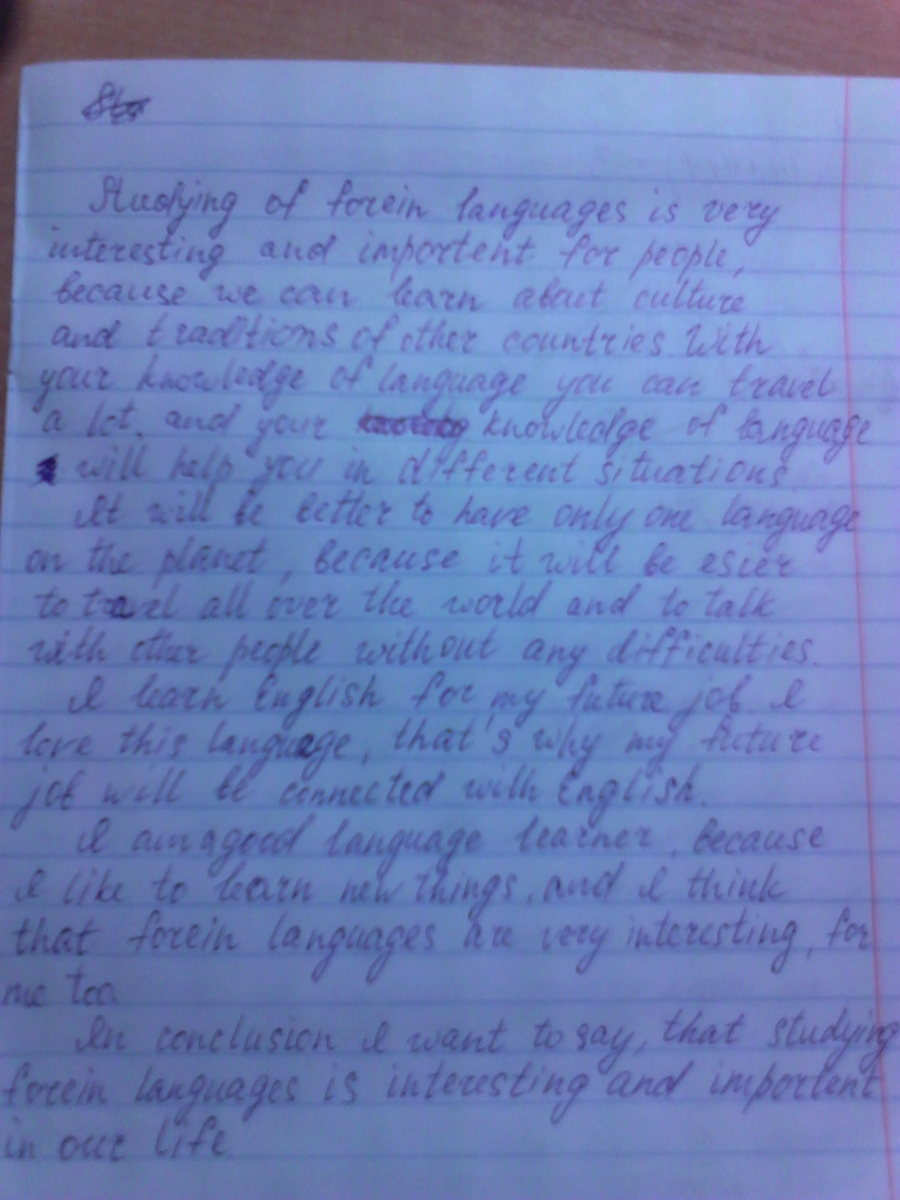 Studying of forein languages is very
interesting and importent for people,
because we can learn about culture
and traditions of other countries. With
your knowledge of language you can travel
a lot, and your knowledge of language
will help you in different situations.
It will be better to have only one language
on the planet, because it will be esier
to travel all over the world and to talk
with other people without any difficulties.
I learn English for my future job. I
love this language, that's why my future
job will be connected with English.
I am a good language learner, because
I like to learn new things, and I think
that forein languages are very interesting, for
me too.
In conclusion I want to say, that studying
forein languages is interesting and importent
in our life.